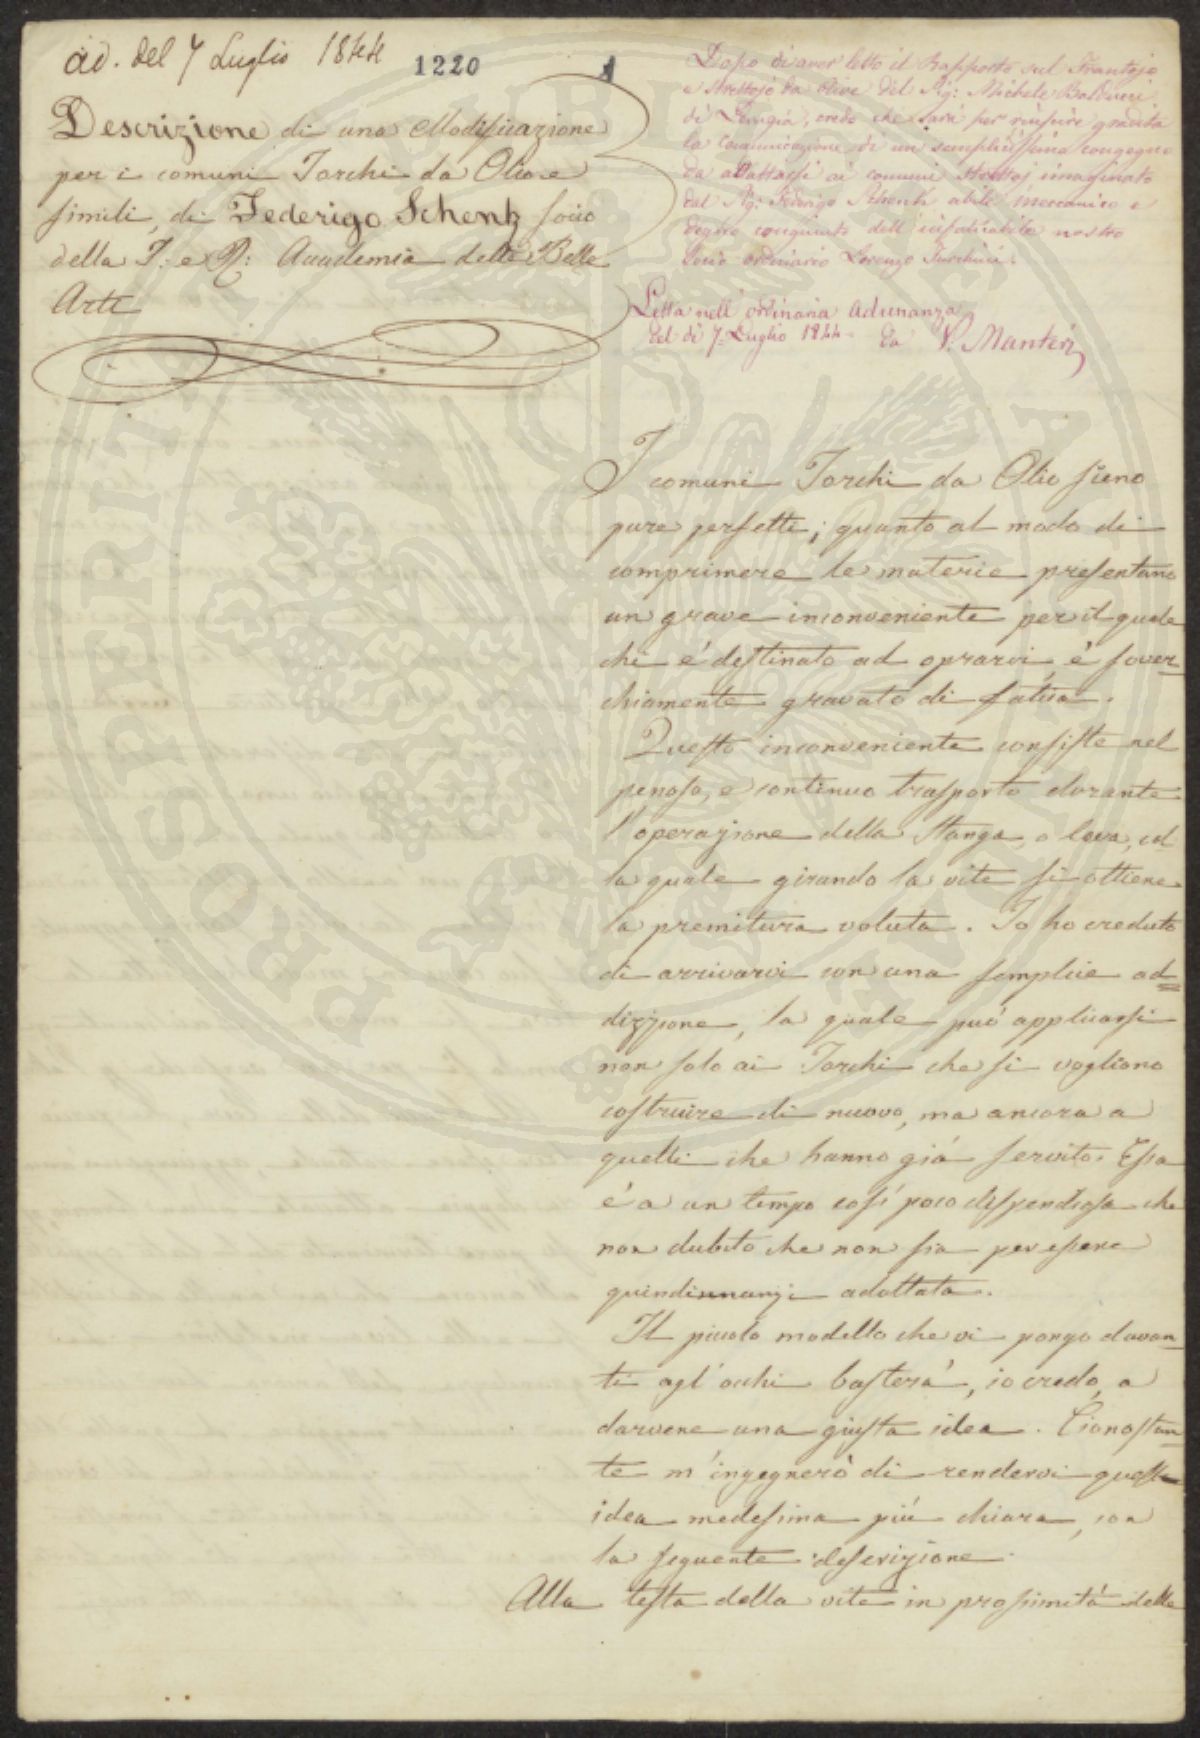 ad. del 7 Luglio 1844
1220
1
Descrizione di una Modificazione
per i comuni Torchi da Olio e
simili, di Federigo Schenk socio
della I: e R: Accademia delle Belle
Arti
Dopo di aver letto il Rapporto sul Frantojo
e Strettojo da Olive del Sig: Michele Balducci
di Perugia, credo che sarà per riuscire gradita
la comunicazione di un semplicissimo congegno
da adattarsi ai comuni Strettoj immaginato
dal Sig: Federigo Schenk abile meccanico e
degno congiunto dell' infaticabile nostro
Socio ordinario Lorenzo Turchini.
Letta nell' ordinaria Adunanza
del dì 7. Luglio 1844 da V. Manteri
I comuni Torchi da Olio sieno
pure perfetti; quanto al modo di
comprimere le materie presentano
un grave inconveniente per il quale
chi é destinato ad oprarvi é sover-
chiamente gravato di fatica.
Questo inconveniente consiste nel
penoso, e continuo trasporto durante
l'operazione della Stanga, o leva, col
la quale girando la vite si ottiene
la premitura voluta. Io ho creduto
di arrivarvi con una semplice ad=
dizzione, la quale puó applicarsi
non solo ai Torchi che si vogliono
costruire di nuovo, ma ancora a
quelli che hanno giá servito. Essa
é a un tempo cosí poco dispendiosa che
non dubito che non sia per essere
quindinnanzi adottata.
Il piccolo modello che vi pongo davan-
ti agl' occhi basterá, io credo, a
darvene una giusta idea. Cionostan-
te m'ingegneró di rendervi questa
idea medesima piú chiara, con
la seguente descrizione.
Alla testa della vite in prossimitá delle